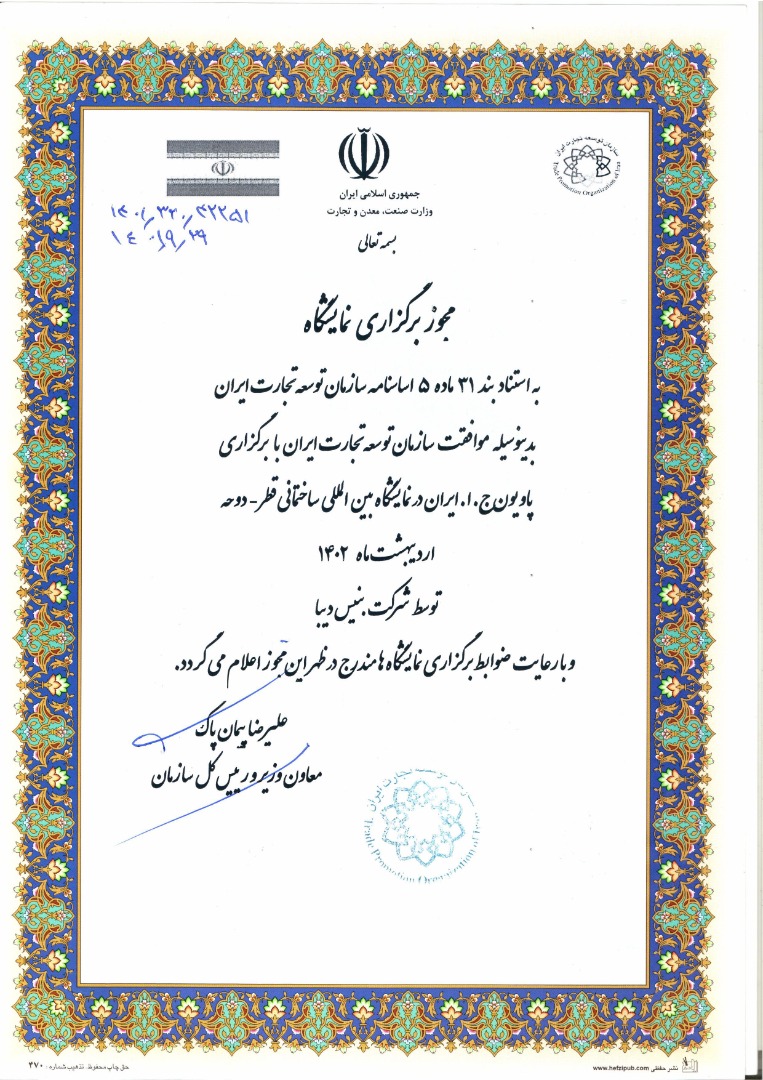 سازمان توسعه تجارت ایران
Trade Promotion Organization of Iran
جمهوری اسلامی ایران
وزارت صنعت، معدن و تجارت
بسمه تعالی
۱۴۰۱/۳۲۰/۴۲۲۵۱
۱۴۰۱/۹/۲۹
مجوز برگزاری نمایشگاه
به استناد بند ۳۱ ماده ۵ اساسنامه سازمان توسعه تجارت ایران
بدینوسیله موافقت سازمان توسعه تجارت ایران با برگزاری
پاویون ج.ا.ایران در نمایشگاه بین المللی ساختمانی قطر - دوحه
اردیبهشت ماه ۱۴۰۲
توسط شرکت بنیس دیبا
و با رعایت ضوابط برگزاری نمایشگاه ها مندرج در ظهر این مجوز اعلام می گردد.
علیرضا پیمان پاک
معاون وزیر و رییس کل سازمان
توسعه تجارت ایران
Trade Promotion Organization of
نشر حفظی www.hefzipub.com
حق چاپ محفوظ. تذهیب شماره: ۴۷۰